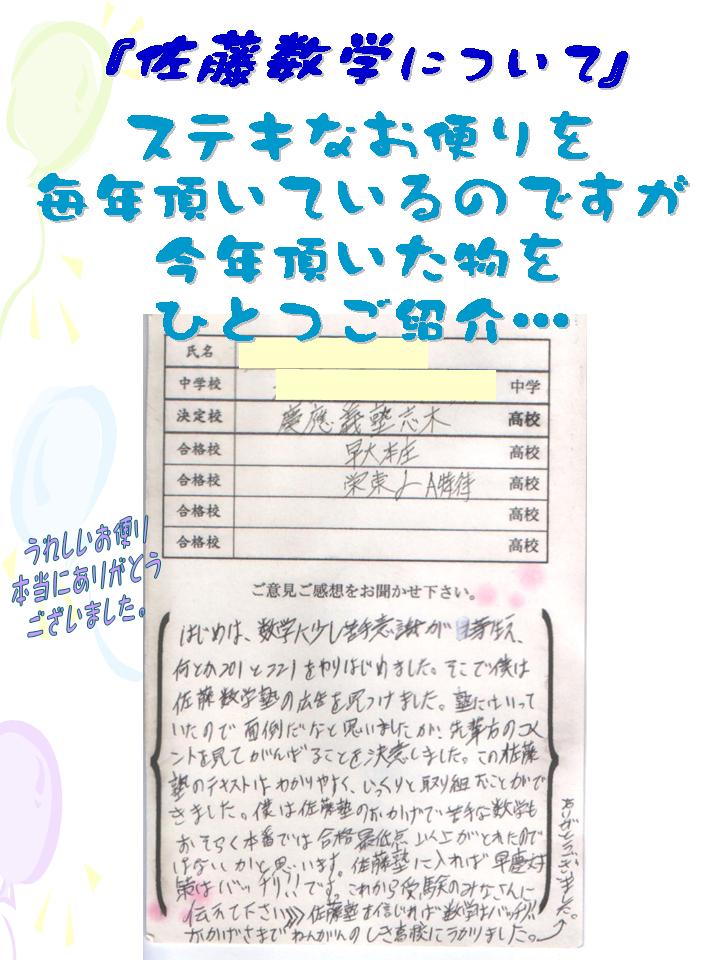 『佐藤数学について』
ステキなお便りを
毎年頂いているのですが
今年頂いた物を
ひとつご紹介…
氏名
中学校 中学
決定校 慶應義塾志木 高校
合格校 早大本庄 高校
合格校 栄東 A特待 高校
合格校 高校
合格校 高校
うれしいお便り
本当にありがとう
ございました。
ご意見ご感想をお聞かせ下さい。
はじめは、数学に少し苦手意識が
何とか201と221をやりはじめました。そこで僕は
佐藤数学塾の広告を見つけました。塾にはいって
いたので面倒だなと思いましたが、先輩方のコメ
ントを見てがんばることを決意しました。この佐藤
塾のテキストはわかりやすく、じっくりと取り組むことがで
きました。僕は佐藤塾のおかげで苦手な数学も
おそらく本番では合格最低点以上がとれたので
はないかと思います。佐藤塾に入れば早慶対
策はバッチリ!!です。これから受験のみなさんに
伝えて下さい》佐藤塾を信じれば数学はバッチリ!!
おかげさまでねんがんのしき高校にうかりました。
ありがとうございました。